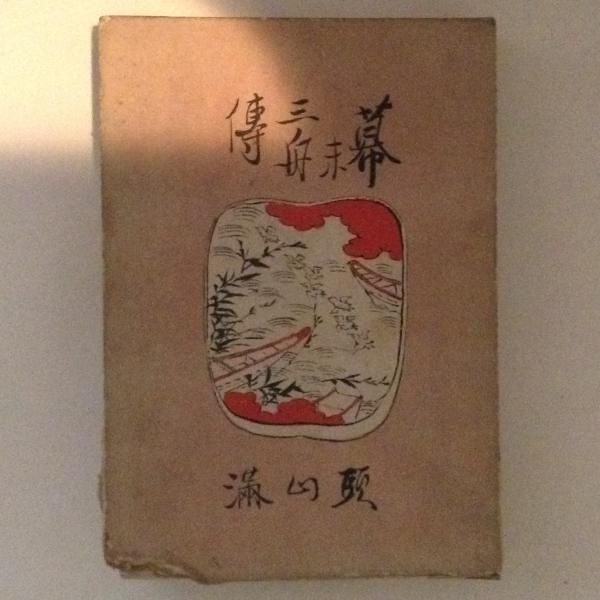 幕末三舟傳
頭山滿